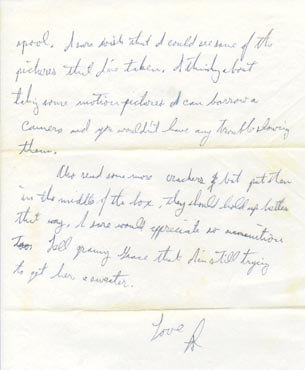 spool. I sure wish that I could see some of the
pictures that I've taken. I thinking about
taking some motion pictures I can borrow a
camera and you wouldn't have any trouble showing
them.
Also send some more crackers but put them
in the middle of the box, they should hold up better
that way. I sure would appreciate so ammunition
too. Tell granny Grace that I'm still trying
to get her a sweater.
Love